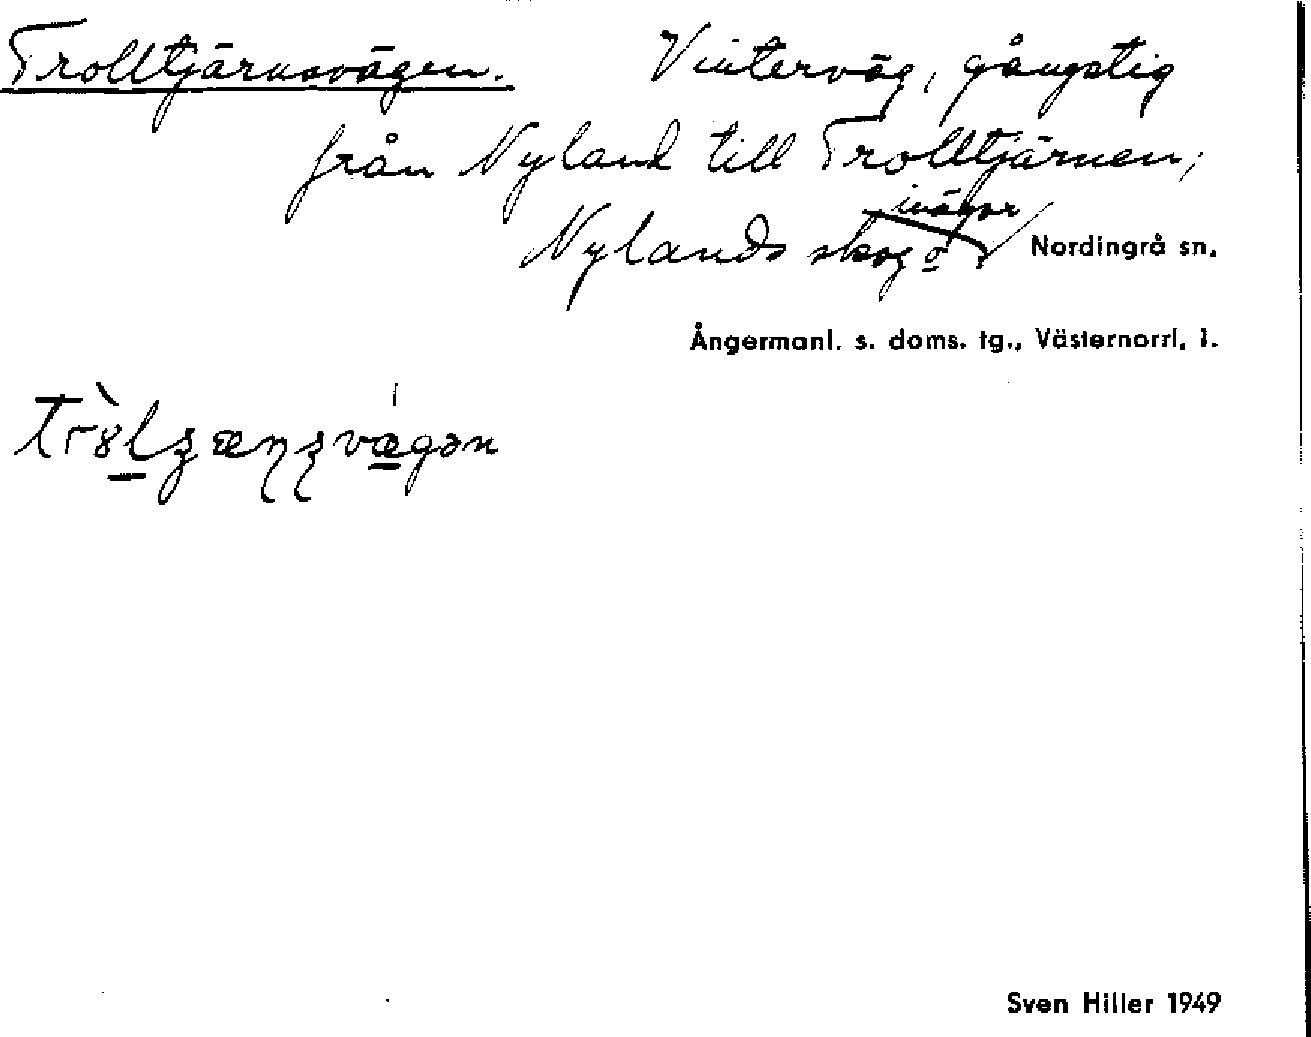 Trolltjärnsvägen. Vinterväg, gångstig
från Nyland till Trolltjärnen;
Nylands skog o inägor Nordingrå sn.
Ångermanl. s. doms. tg., Västernorrl. l.
Sven Hiller 1949